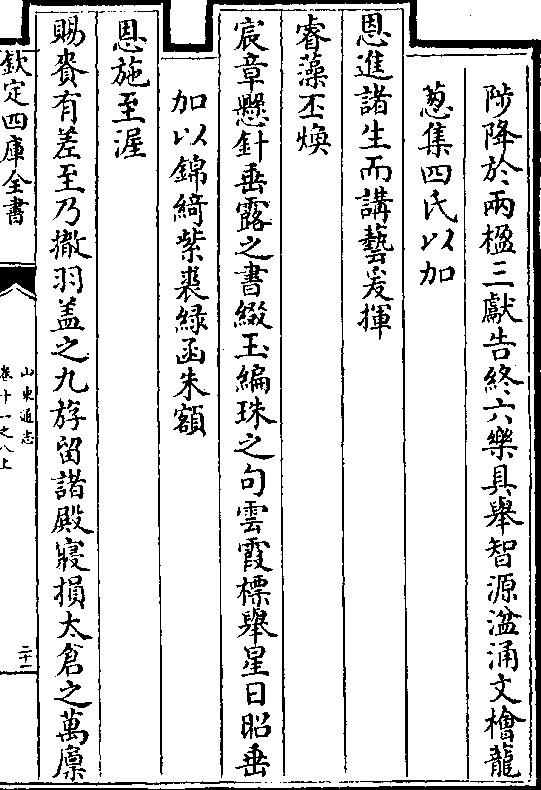 陟降於兩楹三獻告終六樂具舉智源湓涌文檜龍
蔥集四氏以加
恩進諸生而講藝爰揮
睿藻丕煥
宸章懸針垂露之書綴玉編珠之句雲霞標舉星日昭垂
加以錦綺紫裘綠函朱額
恩施至渥
賜賚有差至乃撤羽蓋之九斿留諸殿寢損太倉之萬廪
欽定四庫全書
山東通志
卷十一之八上
二十一